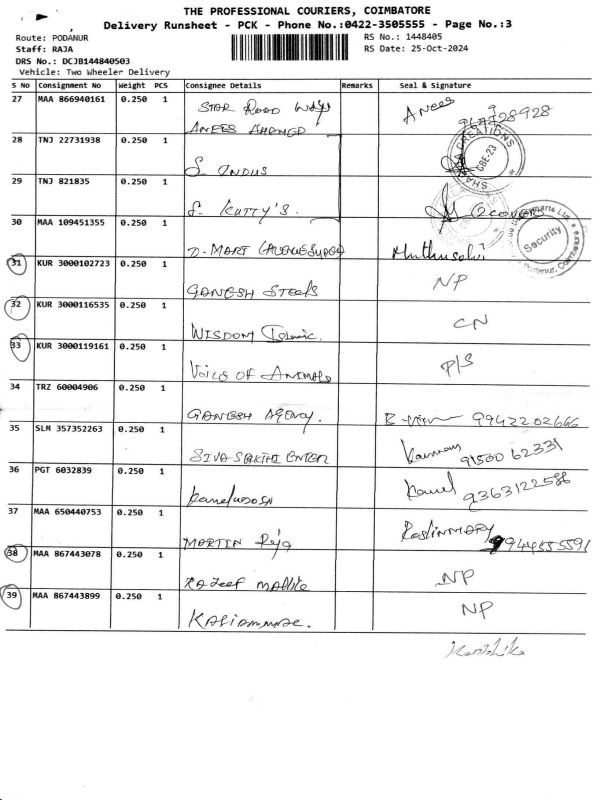 THE PROFESSIONAL COURIERS, COIMBATORE
Delivery Runsheet - PCK - Phone No.:0422-3505555 - Page No.:3
Route: PODANUR
RS No.: 1448405
Staff: RAJA
RS Date: 25-Oct-2024
DRS No.: DCJB144840503
Vehicle: Two Wheeler Delivery
S No Consignment No Weight PCS Consignee Details Remarks Seal & Signature
27 MAA 866940161 0.250 1 STAR ROAD WAYS Anees
ANEES AHAMED
28 TNJ 22731938 0.250 1
S. INDUS
CBE-23
29 TNJ 821835 0.250 1
S. KUTTY'S.
30 MAA 109451355 0.250 1
D-MART (AVENUESUPER)
Security
31 KUR 3000102723 0.250 1 NP
GANESH STEELS
32 KUR 3000116535 0.250 1 CN
WISDOM Islamic.
33 KUR 3000119161 0.250 1 P/S
VOICE OF ANIMALS
34 TRZ 60004906 0.250 1
GANESH AGENCY. 9942202666
35 SLM 357352263 0.250 1
SIVA SAKTHI ENTER 91500 62331
36 PGT 6032839 0.250 1 Kamel 9363122586
37 MAA 650440753 0.250 1 RoslinMARY
MARTIN Raja 9944555591
38 MAA 867443078 0.250 1 NP
39 MAA 867443899 0.250 1 NP
KALIAMMAE.
Karthika